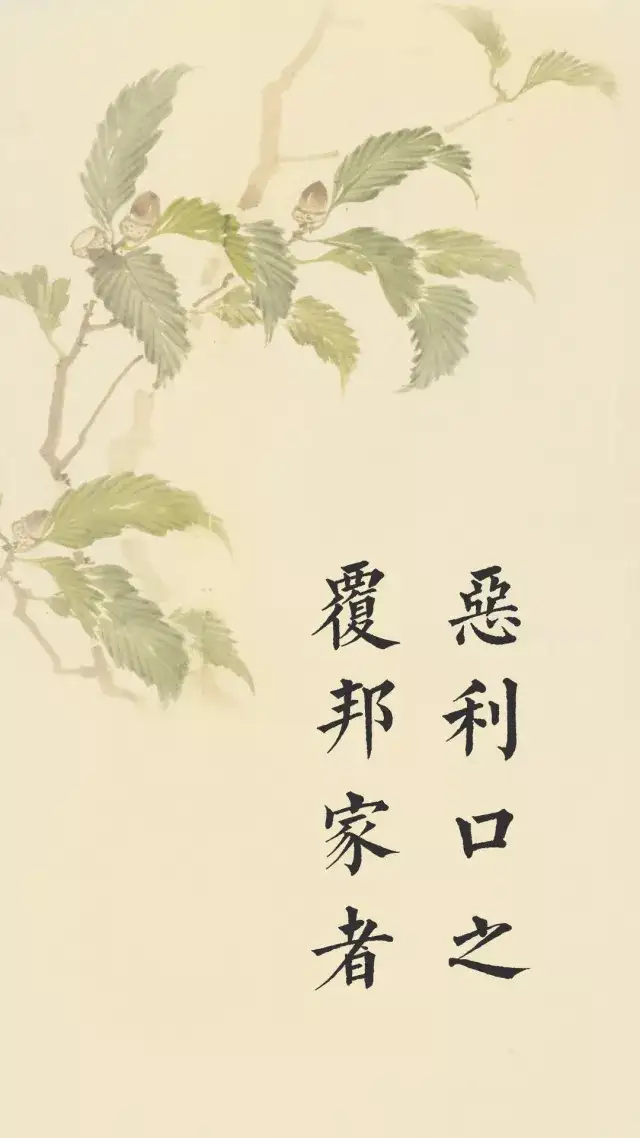 惡利口之
覆邦家者